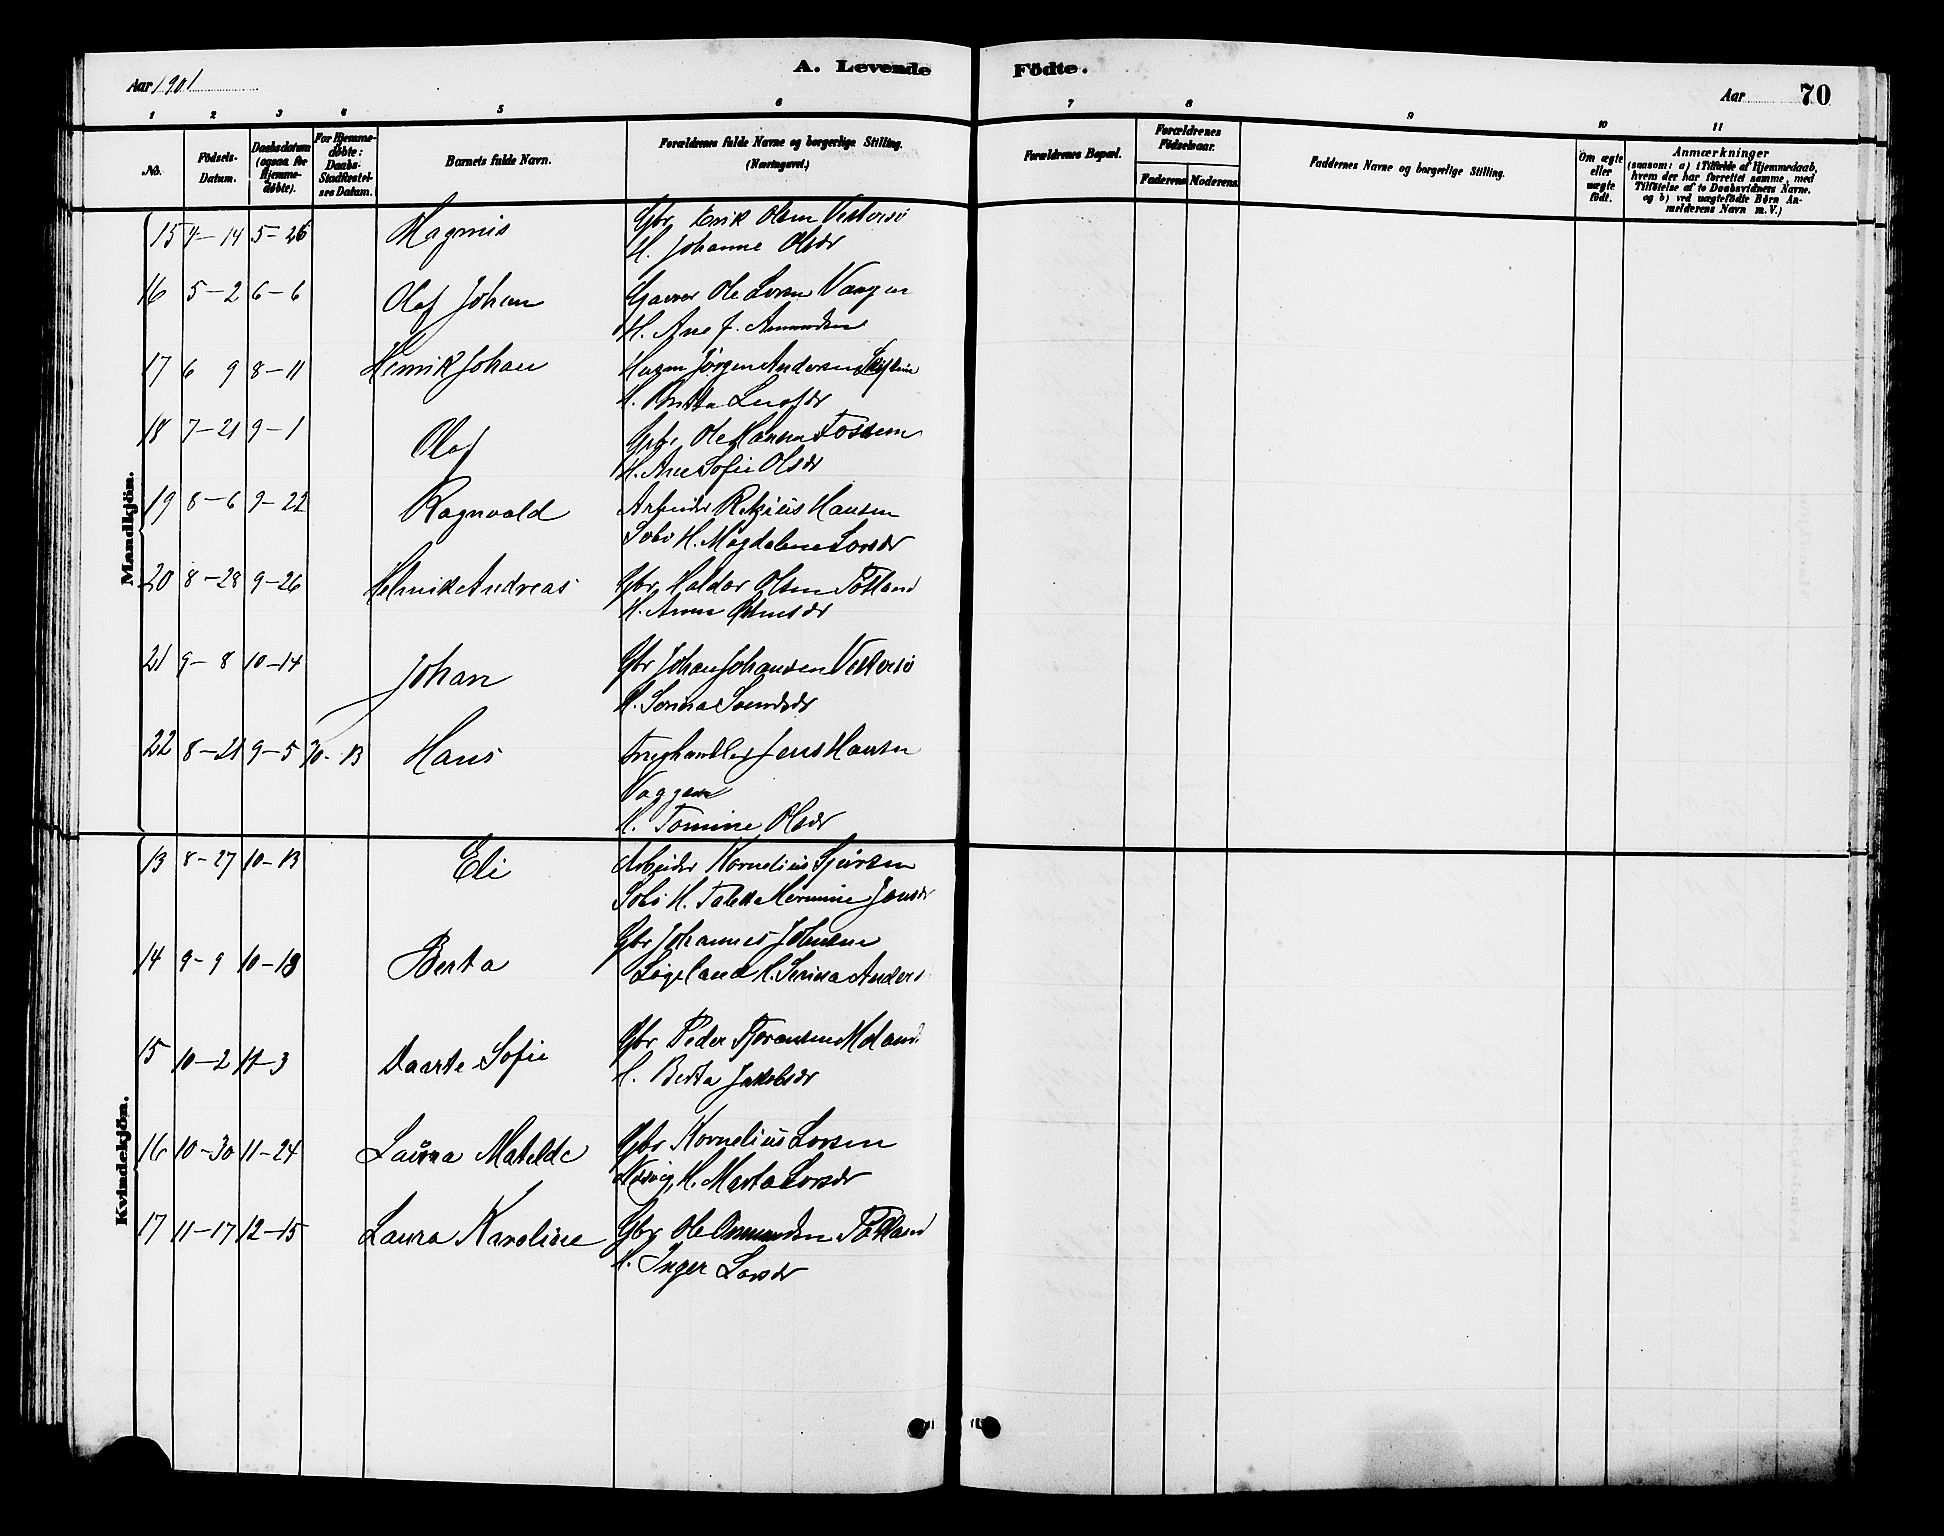 Aar 1901
A. Levende Födte.
Aar 70
1 2 3 4 5 6 7 8 9 10 11
No.
Födsels-Datum.
Daabsdatum (ogsaa for Hjemme-döbte).
For Hjemme-döbte: Daabs-Stadfæstel-ses Datum.
Barnets fulde Navn.
Forældrenes fulde Navne og borgerlige Stilling. (Næringsvei.)
Forældrenes Bopæl.
Forældrenes Födselsaar.
Faderens Moderens.
Faddernes Navne og borgerlige Stilling.
Om ægte eller uægte födt.
Anmærkninger
(saasom: a) i Tilfælde af Hjemmedaab,
hvem der har forrettet samme, med
Tilföielse af to Daabsvidners Navne.
og b) ved uægtefödte Börn An-
melderens Navn m. V.)
Mandkjön.
15 4-14 5-26 Magnus Gbr Erik Olsen Vestersö
H. Johanne Olsdr
16 5-2 6-6 Olaf Johan Gaard Ole Larsen Vaagen
H. Ane J. Amundsen
17 6 9 8-11 Henrik Johan Husm Jörgen Andersen
H. Brita Larsdr
18 7-21 9-1 Olaf Gbr Ole Hansen Fossem
H. Ane Sofie Olsdr
19 8-6 9-22 Ragnvald Arbeider Hansen
H. Magdalena Larsdr
20 8-28 9-26 Helmik Andreas Gbr Haldor Olsen Totland
H. Anna
21 9-8 10-14 Johan Gbr Johan Johansen Vestersö
H. Serina Svendsdr
22 8-21 9-5 10-13 Hans Jens Hansen
Vaagen
H. Tomine Olsdr
Kvindekjön.
13 8-27 10-13 Eli Arbeider Kornelius Sjursen
H. Hermine Jensdr
14 9-9 10-13 Berta Gbr Johannes Johnsen
H. Serina Anders
15 10-2 11-3 Daarte Sofie Gbr Peder
H. Berta Jakobsdr
16 10-30 11-24 Laura Matelde Gbr Kornelius Larsen
H. Marta Larsdr
17 11-17 12-15 Laura Karoline Gbr Ole Totland
H. Inger Larsdr